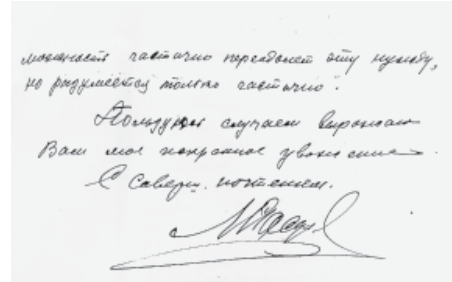 частично эту нужду,
но разумеется только частично".
Пользуюсь случаем выразить
Вам мое искреннее уважение
С соверш. почтением.